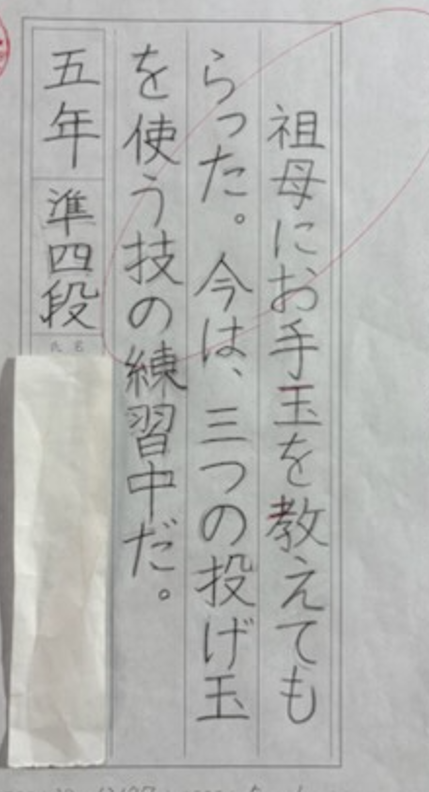 祖母にお手玉を教えても
らった。今は、三つの投げ玉
を使う技の練習中だ。
五年 準四段
氏名